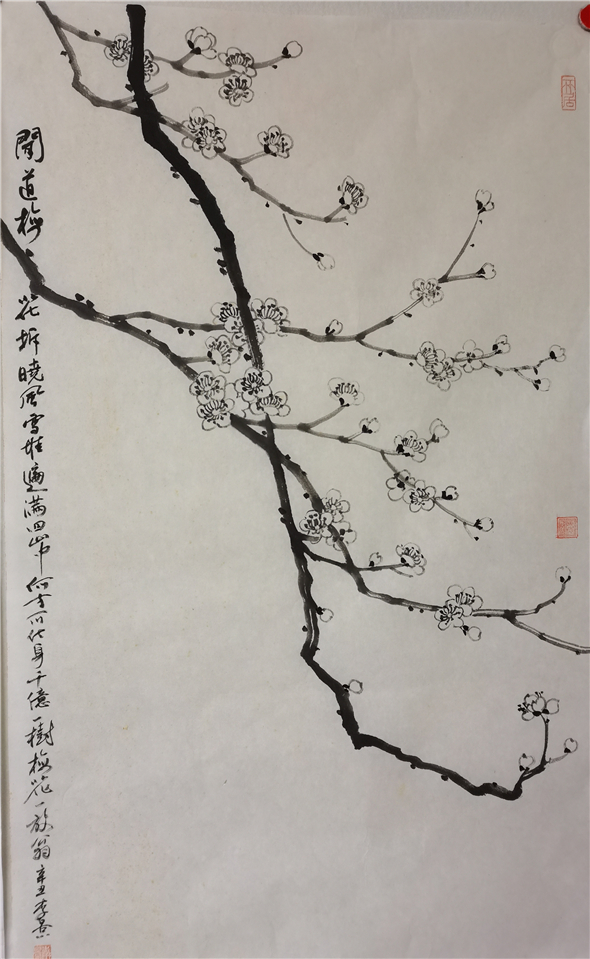 聞道梅花坼曉風雪堆遍滿四山中何方可化身千億一樹梅花一放翁辛丑